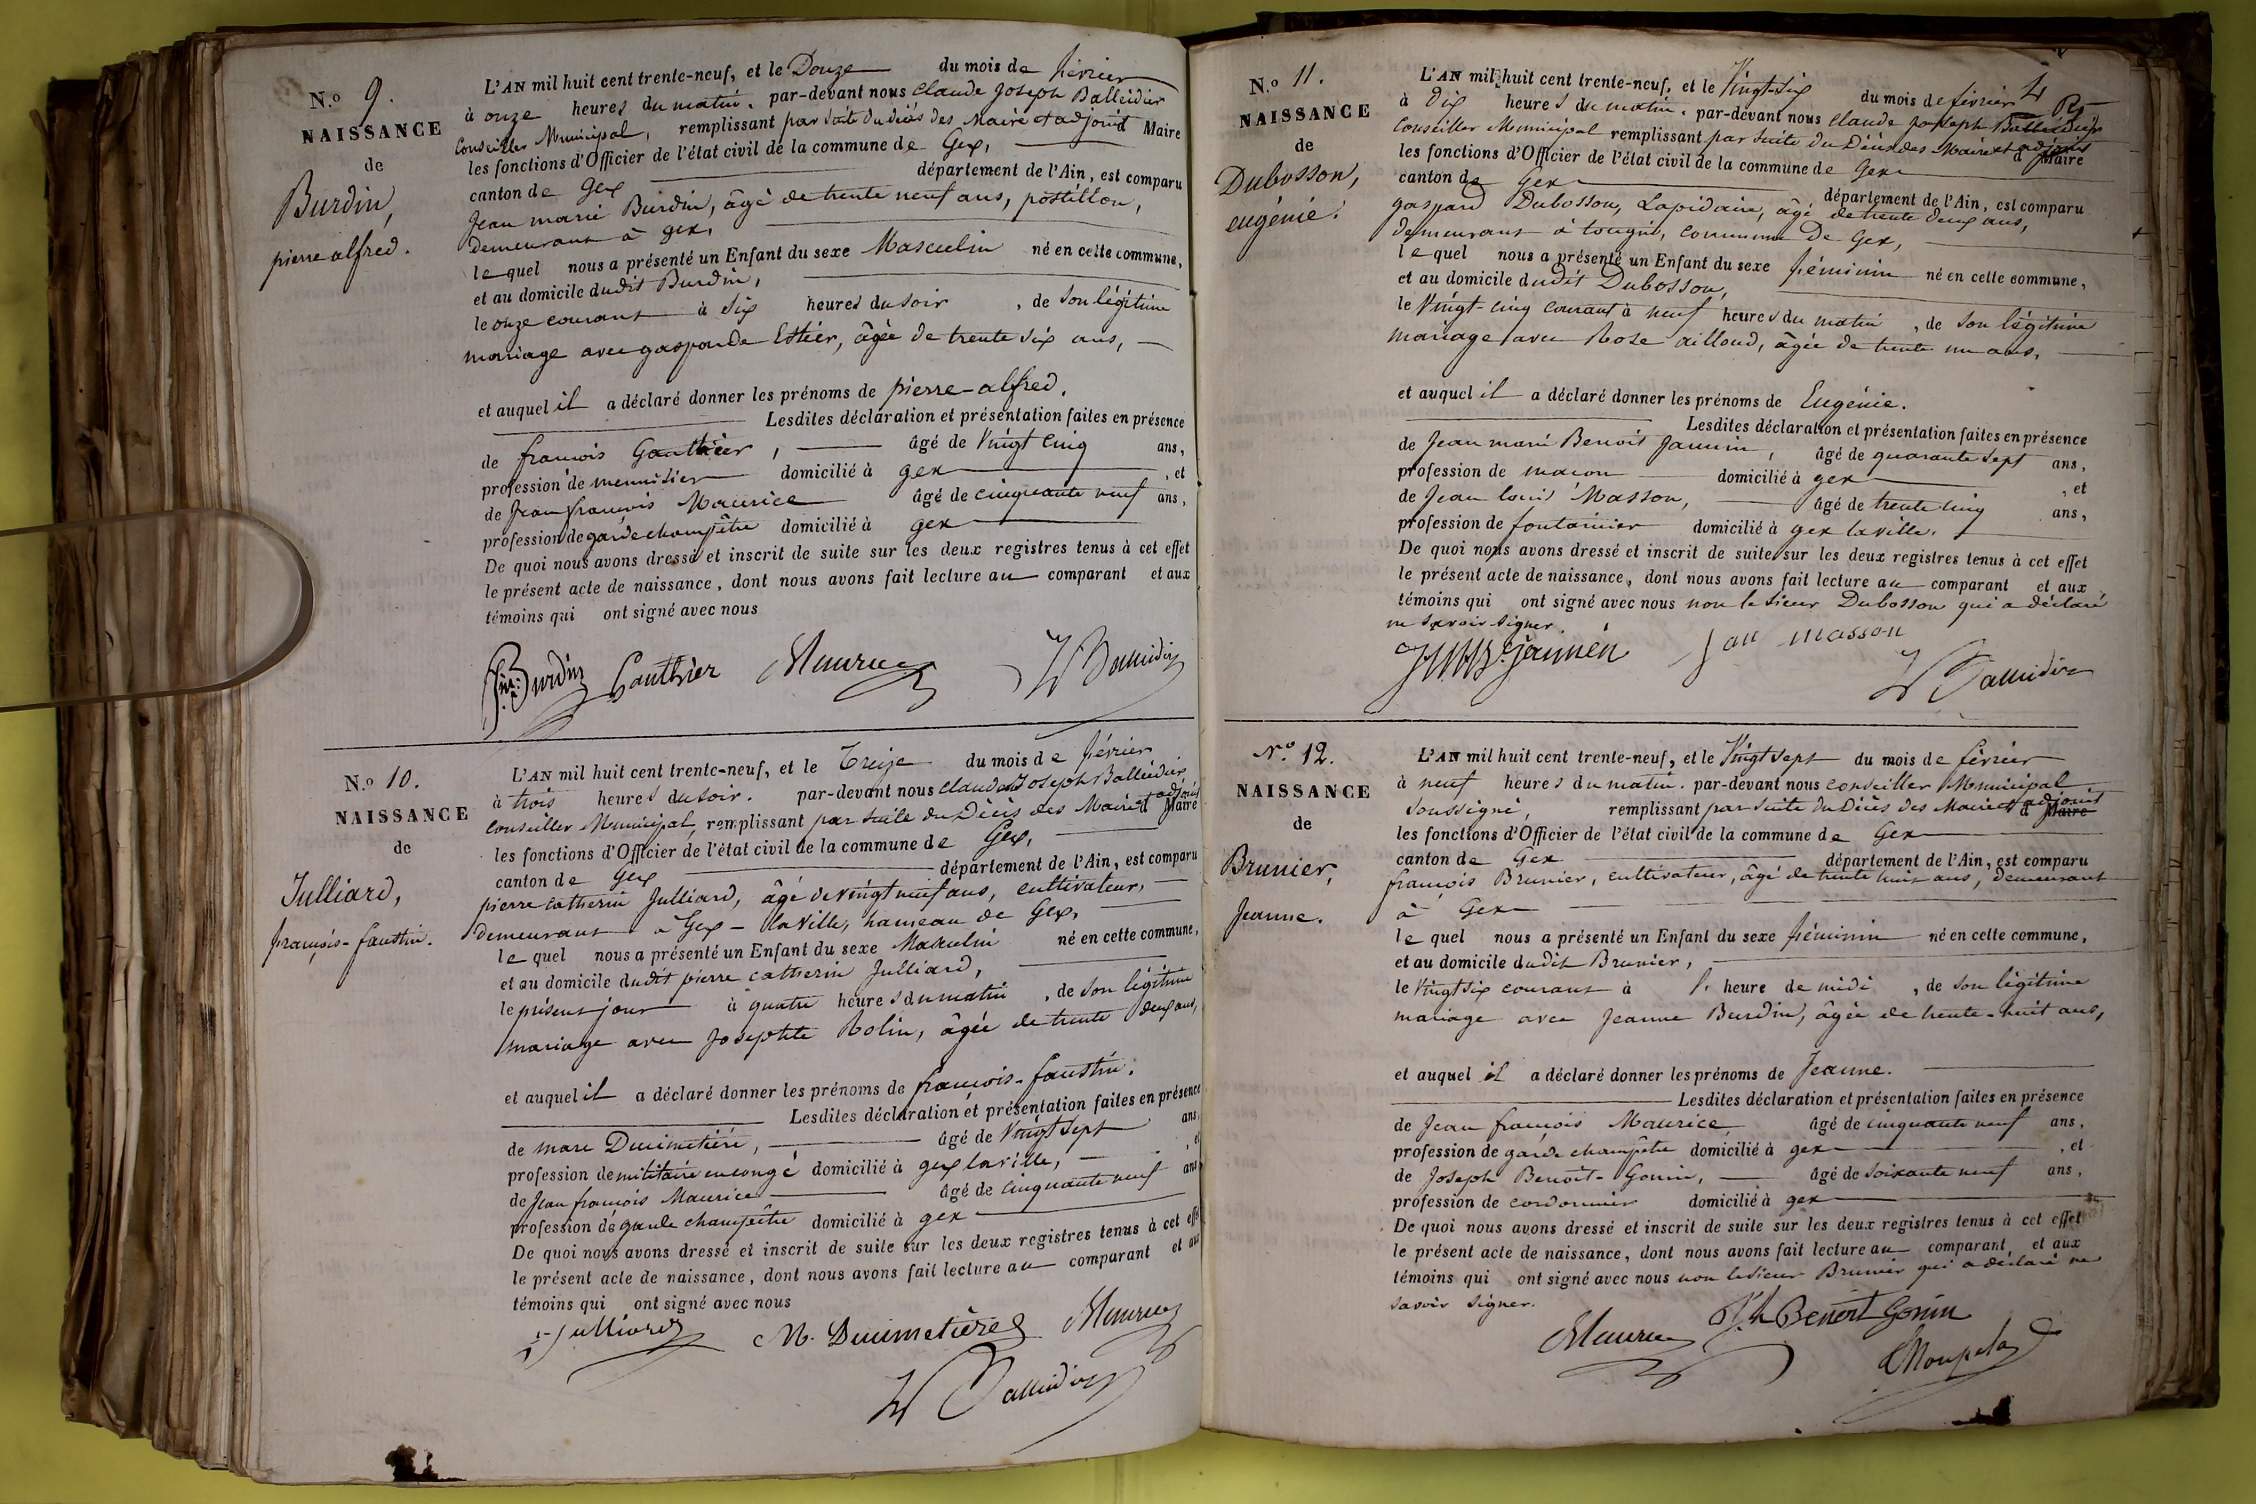 N.o 9.
NAISSANCE
de
Burdin,
pierre alfred.
L'AN mil huit cent trente-neuf, et le Douze du mois de février
à onze heures du matin. par-devant nous Claude Joseph Balleidier
Conseiller Municipal, remplissant par suite du décès des Maire et adjoint d Maire
les fonctions d'Officier de l'état civil de la commune de Gex,
canton de Gex département de l'Ain, est comparu
Jean marie Burdin, âgé de trente neuf ans, postillon,
demeurant à gex,
le quel nous a présenté un Enfant du sexe Masculin né en cette commune,
et au domicile dudit Burdin,
le onze courant à six heures du soir , de son légitime
mariage avec gasparde Estier, âgée de trente six ans,
et auquel il a déclaré donner les prénoms de pierre-alfred.
Lesdites déclaration et présentation faites en présence
de françois Gauthier, âgé de Vingt cinq ans,
profession de menuisier domicilié à gex , et
de Jean françois Maurice âgé de cinquante neuf ans,
profession de garde champêtre domicilié à gex
De quoi nous avons dressé et inscrit de suite sur les deux registres tenus à cet effet
le présent acte de naissance, dont nous avons fait lecture au comparant et aux
témoins qui ont signé avec nous
Burdin Gauthier Maurice Balleidier
N.o 10.
NAISSANCE
de
Julliard,
françois-faustin.
L'AN mil huit cent trente-neuf, et le Treize du mois de février
à trois heures du soir. par-devant nous Claude Joseph Balleidier
Conseiller Municipal, remplissant par suite du Décès des Maire et adjoint d Maire
les fonctions d'Officier de l'état civil de la commune de Gex,
canton de Gex département de l'Ain, est comparu
pierre catherin Julliard, âgé de vingt neuf ans, cultivateur,
demeurant à Gex-la Ville, hameau de Gex,
le quel nous a présenté un Enfant du sexe Masculin né en cette commune,
et au domicile dudit pierre catherin Julliard,
le présent jour à quatre heures du matin , de son légitime
mariage avec Josephte Rolin, âgée de trente deux ans,
et auquel il a déclaré donner les prénoms de françois-faustin.
Lesdites déclaration et présentation faites en présence
de marc Ducimetière, âgé de Vingt sept ans,
profession de militaire en congé domicilié à gex la ville, , et
de Jean françois Maurice âgé de cinquante neuf ans
profession de garde champêtre domicilié à gex
De quoi nous avons dressé et inscrit de suite sur les deux registres tenus à cet effet
le présent acte de naissance, dont nous avons fait lecture au comparant et aux
témoins qui ont signé avec nous
Julliard M. Ducimetière Maurice
Balleidier
N.o 11.
NAISSANCE
de
Dubosson,
eugénie.
L'AN mil huit cent trente-neuf, et le Vingt-six du mois de février
à Dix heures du matin. par-devant nous Claude Joseph Balleidier
Conseiller Municipal remplissant par suite du Décès des Maire et adjoint d Maire
les fonctions d'Officier de l'état civil de la commune de Gex
canton de Gex département de l'Ain, est comparu
gaspard Dubosson, Lapidaire, âgé de trente deux ans,
demeurant à tougin, commune de Gex,
le quel nous a présenté un Enfant du sexe féminin né en cette commune,
et au domicile dudit Dubosson,
le Vingt-cinq courant à neuf heures du matin , de son légitime
mariage avec Rose ailloud, âgée de trente un ans,
et auquel il a déclaré donner les prénoms de Eugénie.
Lesdites déclaration et présentation faites en présence
de Jean marie Benoit Jaunin, âgé de quarante sept ans,
profession de macon domicilié à gex , et
de Jean louis Masson, âgé de trente cinq ans,
profession de fontainier domicilié à gex la ville.
De quoi nous avons dressé et inscrit de suite sur les deux registres tenus à cet effet
le présent acte de naissance, dont nous avons fait lecture au comparant et aux
témoins qui ont signé avec nous non le sieur Dubosson qui a déclaré
ne savoir signer.
Jaunen Jan masson
Balleidier
N.o 12.
NAISSANCE
de
Brunier,
Jeanne.
L'AN mil huit cent trente-neuf, et le Vingt sept du mois de février
à neuf heures du matin. par-devant nous conseiller Municipal
soussigné, remplissant par suite du Décès des Maire et adjoint d Maire
les fonctions d'Officier de l'état civil de la commune de Gex
canton de Gex département de l'Ain, est comparu
françois Brunier, cultivateur, âgé de trente huit ans, demeurant
à Gex
le quel nous a présenté un Enfant du sexe féminin né en cette commune,
et au domicile dudit Brunier,
le Vingt six courant à l' heure de midi , de son légitime
mariage avec Jeanne Burdin, âgée de trente-huit ans,
et auquel il a déclaré donner les prénoms de Jeanne.
Lesdites déclaration et présentation faites en présence
de Jean françois Maurice âgé de cinquante neuf ans,
profession de garde champêtre domicilié à gex , et
de Joseph Benoit-Gonin, âgé de soixante neuf ans,
profession de cordonnier domicilié à gex
De quoi nous avons dressé et inscrit de suite sur les deux registres tenus à cet effet
le présent acte de naissance, dont nous avons fait lecture au comparant, et aux
témoins qui ont signé avec nous non le sieur Brunier qui a déclaré ne
savoir signer.
Maurice Jh Benoit Gonin